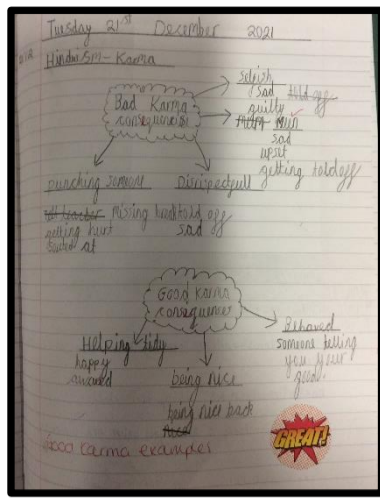 Tuesday 21st December 2021
Hinduism - Karma
Bad Karma
consequences
selfish
sad told off
guilty
mean
sad
upset
getting told off
punching someone
missing
getting hurt
at
Disrespectfull
told off
sad
Good karma
consequences
Helping tidy
happy
award
being nice
being nice back
Behaved
someone telling
you your
good.
Good karma examples
GREAT!